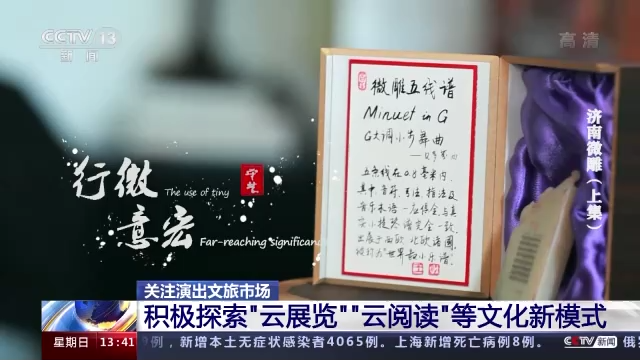 CCTV 13
新闻
高清
微雕五线谱
Minuet in G
G大调小步舞曲
五线在0.8毫米内,
其中音符、弓法、指法及
音乐术语一应俱全,与真
实小提琴谱完全一致.
济南微雕(上集)
行微
意宏
The use of tiny
Far-reaching significance
关注演出文旅市场
积极探索"云展览""云阅读"等文化新模式
星期日 13:41 9例,新增本土无症状感染者4065例。上海新增死亡病例8例。 CCTV 新闻 俄